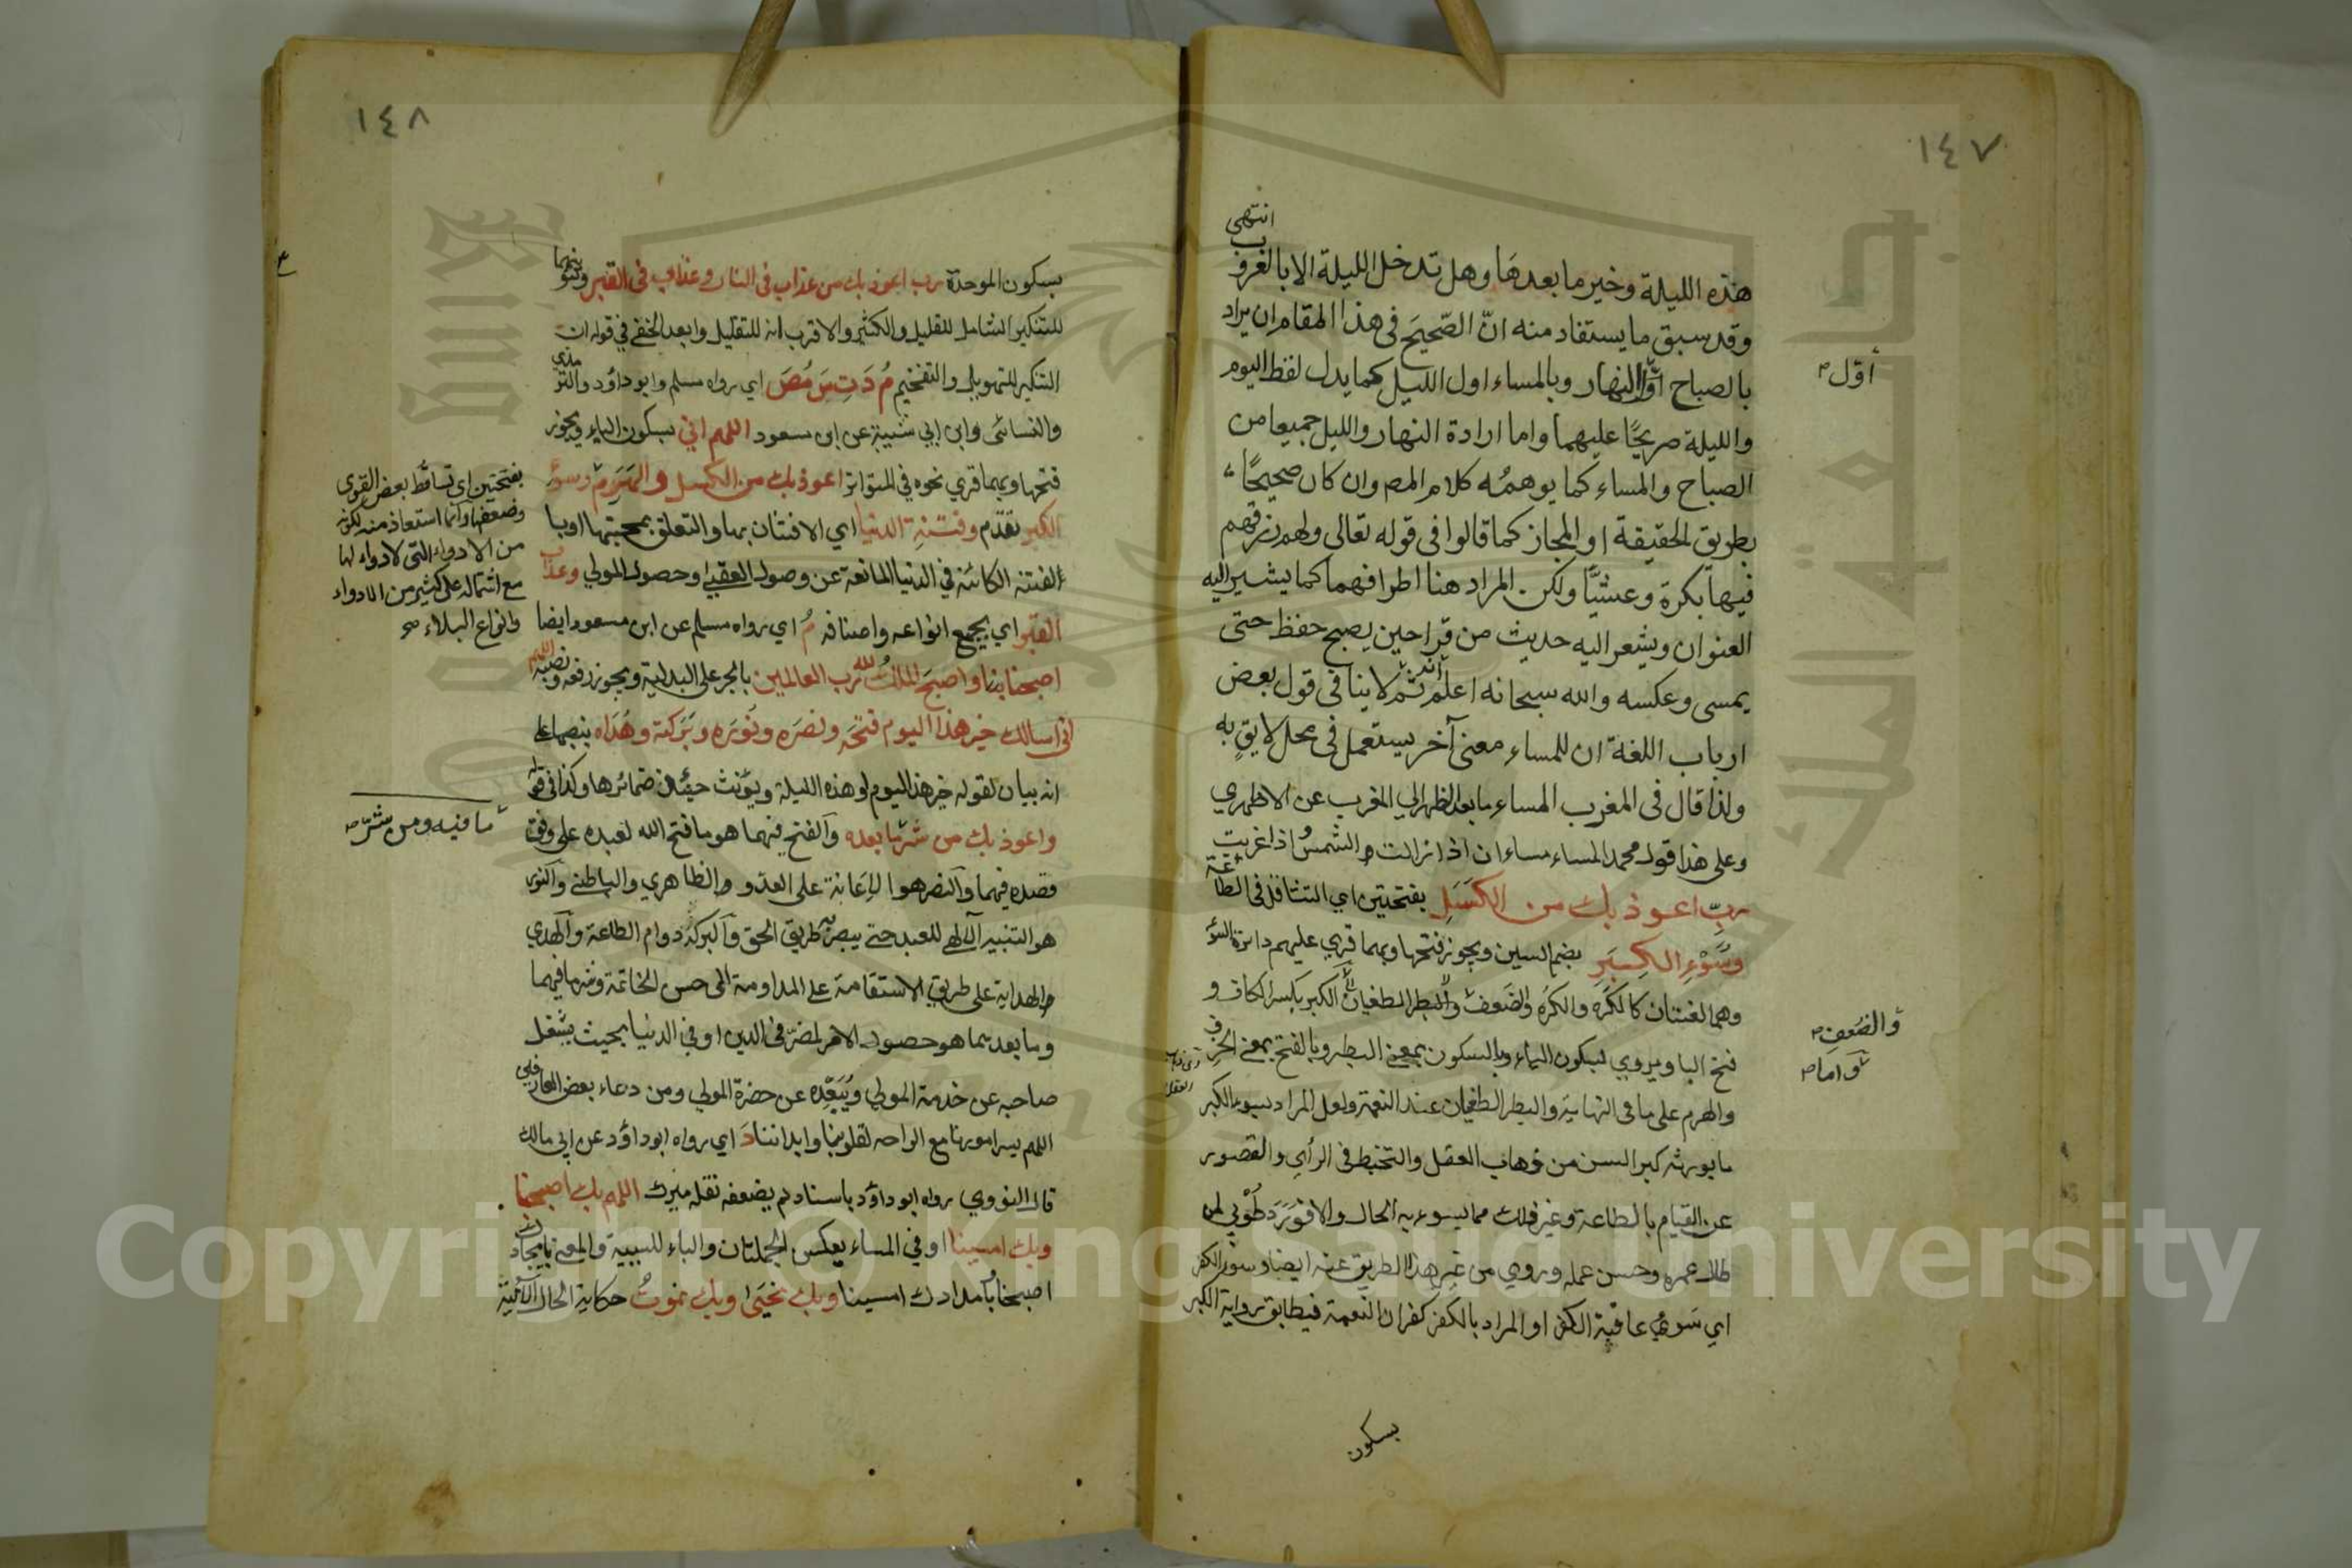 ١٤٧
انتهى
هذه الليلة وخير ما بعدها وهل تدخل الليلة الا بالغروب
وقد سبق ما يستفاد منه انّ الصّحيح فى هذا المقام ان يراد
بالصباح اوّل النهار وبالمساء اول الليل كما يدل لفظ اليوم
أوّل
والليلة صريحًا عليهما واما ارادة النهار والليل جميعا من
الصباح والمساء كما يوهمُه كلام المص وان كان صحيحًا
بطريق الحقيقة او المجاز كما قالوا فى قوله تعالى ولهم رزقهم
فيها بكرة وعشيًّا ولكن المراد هنا اطرافهما كما يشير اليه
العنوان ويشعر اليه حديث من قرا حين يصبح حفظ حتى
يمسى وعكسه والله سبحانه اعلم ثم لا ينافى قول بعض
ارباب اللغة ان للمساء معنى آخر يستعمل فى محل لايق به
ولذا قال فى المغرب المساء ما بعد الظهر الي المغرب عن الازهري
وعلى هذا قول محمد المساء مساءان اذا زالت الشمسُ اذا غربت
ربِّ اعوذ بك من الكَسَلِ بفتحتين اي التثاقل فى الطاعة
وسُوْءِ الكِبَرِ بضم السين ويجوز فتحها وبهما قري عليهم دائرة السّوء
وهما لغتان كالكَرْه والكُرْه والضَعف والبطر الطغيان الكبر بكسر الكاف و
والضُعف
واما
فتح البا ويروي بسكون الياء وبالسكون بمعنى البطر وبالفتح بمعنى الخرف
والهرم على ما فى النهاية والبطر الطغيان عند النعمة ولعل المراد بسوء الكبر
ما يورثه كبر السن من ذهاب العقل والتخبط فى الرأي والقصور
عن القيام بالطاعة وغير ذلك مما يسوء به الحال والا فورد طُوْبي لمن
طال عمره وحسن عمله وروي من غير هذا الطريق عنه ايضا وسوء الكفر
اي سوء عاقبة الكفر او المراد بالكفر كفران النعمة فيطابق رواية الكبر
بسكون
١٤٨
بسكون الموحدة رب اعوذ بك من عذاب فى النار وعذاب فى القبر وتنوينهما
للتنكير الشامل للقليل والكثير والاقرب انه للتقليل وابعد الحنفي في قوله ان
التنكير للتهويل والتفخيم مُ دَ تِ سَ مُصَ اي رواه مسلم وابو داؤد والترمذي
والنسائى وابن ابي شيبة عن ابن مسعود اللهم اني بسكون الياء ويجوز
فتحها وبهما قري نحوه في المتواتر اعوذ بك من الكسل والهَرَم وسوء
بفتحتين اي تساقط بعض القوى
وضعفها وانما استعاذ منه لكونه
من الادواء التى لا دواء لها
مع اشتماله على كثير من الادواء
وانواع البلاء
الكبر تقدم وفتنةِ الدنيا اي الافتتان بها والتعلق بمحبتها او با
لفتنة الكائنة في الدنيا المانعة عن وصول العقبى وحصول المولي وعذاب
القبر اي بجميع انواعه واصنافه مُ اي رواه مسلم عن ابن مسعود ايضا
اصبحنا واصبحَ الملكُ لله رب العالمين بالجر على البدلية ويجوز رفعه ونصبه اللهم
انى اسالك خير هذا اليوم فتحَه ونصرَه ونُورَه وبَرَكته وهُدَاه بنصبها على
انه بيان لقوله خير هذا اليوم او هذه الليلة ويؤنث حينئذ ضمائرها وكذا فى قوله
واعوذ بك من شرّ ما بعده والفتح فيهما هو ما فتح الله لعبده على وفق
ما فيه ومن شرّ
قصده فيهما والنصر هو الاِعَانة على العدو الظاهري والباطنى والنور
هو التنبيه الالهي للعبد حتى يبصر به طريق الحق والبركة دوام الطاعة والهدي
الهداية على طريق الاستقامة على المداومة الى حسن الخاتمة وشر ما فيهما
وما بعدهما هو حصول الامر المضرّ فى الدين او في الدنيا بحيث يشغل
صاحبه عن خدمة المولي ويُبَعِّده عن حضرة المولي ومن دعاء بعض العارفين
اللهم يسر امورنا مع الراحه لقلوبنا وابداننا دَ اي رواه ابو داؤد عن ابى مالك
قال النووي رواه ابو داؤد باسناد لم يضعفه نقله ميرك اللهم بك اصبحنا
وبك امسينا او في المساء بعكس الجملتان والباء للسببية والمعنى بايجادك
اصبحنا بامدادك امسينا وبك نحيَى وبك نموتُ حكاية الحال الآتية
Copyright © King Saud University